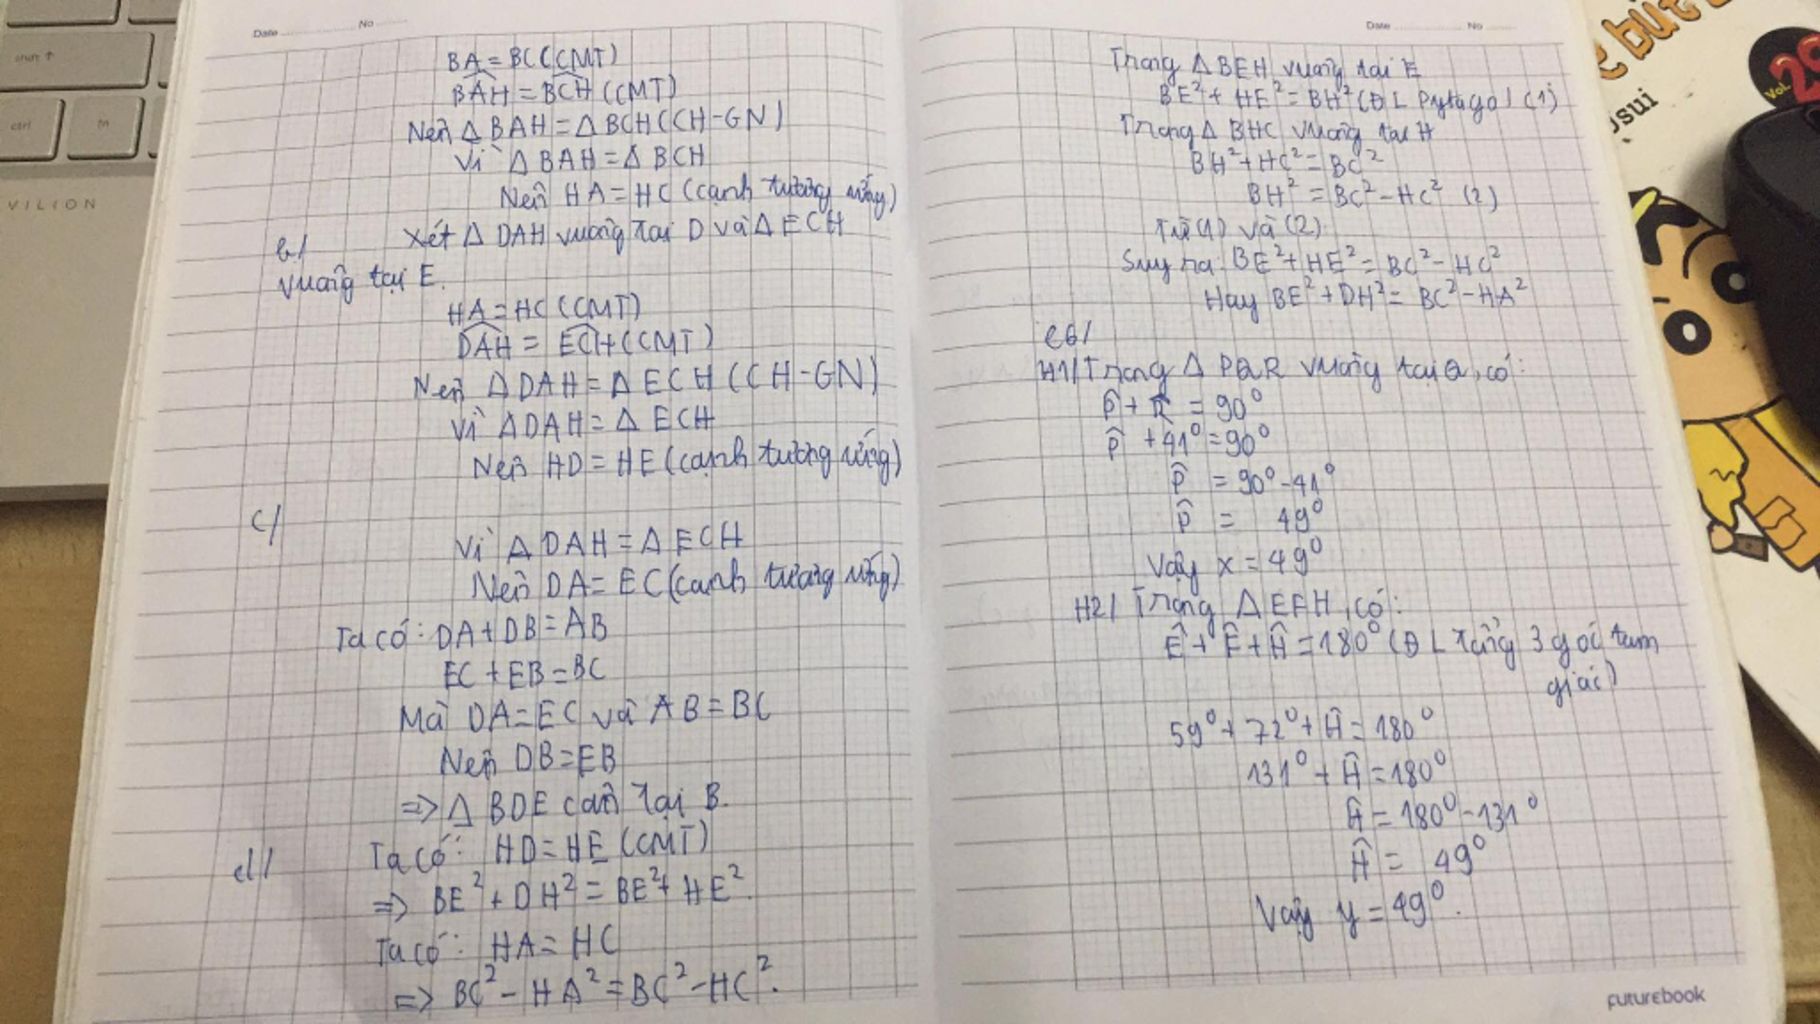 shift ↑
ctrl
fn
VILION
Date No
BA = BC (CMT)
BAH = BCH (CMT)
Nên Δ BAH = Δ BCH (CH-GN)
Vì Δ BAH = Δ BCH
Nên HA = HC (cạnh tương ứng)
b/ Xét Δ DAH vuông tại D và Δ ECH
vuông tại E.
HA = HC (CMT)
DAH = ECH (CMT)
Nên Δ DAH = Δ ECH (CH-GN)
Vì Δ DAH = Δ ECH
Nên HD = HE (cạnh tương ứng)
c/
Vì Δ DAH = Δ ECH
Nên DA = EC (cạnh tương ứng)
Ta có: DA + DB = AB
EC + EB = BC
Mà DA = EC và AB = BC
Nên DB = EB
=> Δ BDE cân tại B.
d/ Ta có: HD = HE (CMT)
=> BE² + DH² = BE² + HE².
Ta có: HA = HC
=> BC² - HA² = BC² - HC².
Date No
Trong Δ BEH vuông tại E
BE² + HE² = BH² (ĐL Pytago) (1)
Trong Δ BHC vuông tại H
BH² + HC² = BC²
BH² = BC² - HC² (2)
Từ (1) và (2)
Suy ra: BE² + HE² = BC² - HC²
Hay BE² + DH² = BC² - HA²
C6/
H1/ Trong Δ PQR vuông tại Q, có:
P̂ + R̂ = 90°
P̂ + 41° = 90°
P̂ = 90° - 41°
P̂ = 49°
Vậy x = 49°
H2/ Trong Δ EFH, có:
Ê + F̂ + Ĥ = 180° (ĐL tổng 3 góc tam
giác)
59° + 72° + Ĥ = 180°
131° + Ĥ = 180°
Ĥ = 180° - 131°
Ĥ = 49°
Vậy y = 49°.
futurebook
bút
Vol.